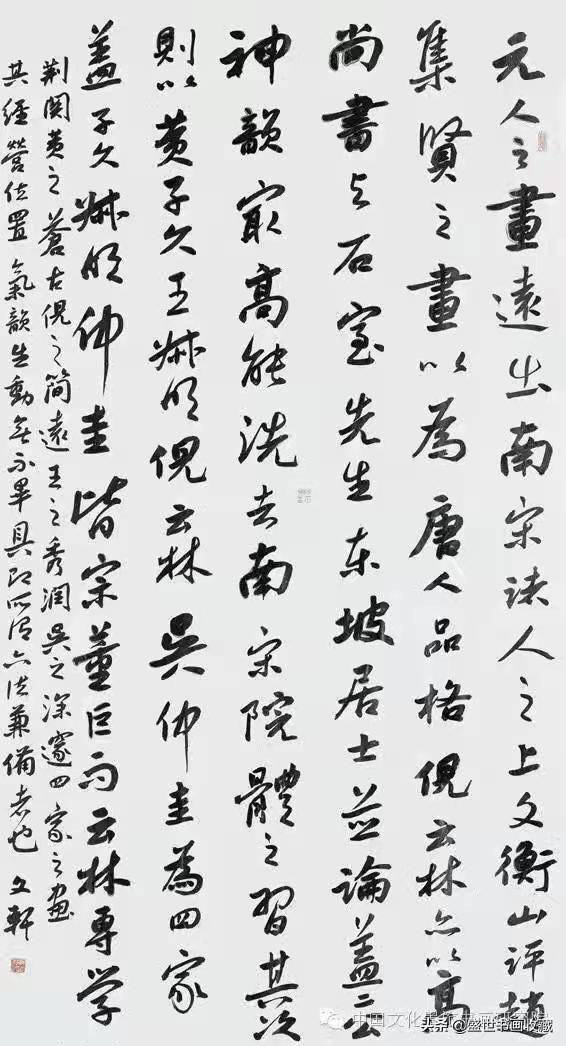 元人之畫遠出南宋諸人之上文衡山評趙
集賢之畫以為唐人品格倪云林亦以高
尚書与石室先生东坡居士並論蓋二公
神韻冣高能洗去南宋院體之習其次
則以黄子久王叔明倪云林吴仲圭為四家
蓋子久叔明仲圭皆宗董巨而云林專学
荆関黄之蒼古倪之简遠王之秀润吴之深邃四家之画
其经營位置氣韻生動無不畢具即所谓六法兼備者也 文軒
中国文化
头条@盛世书画收藏